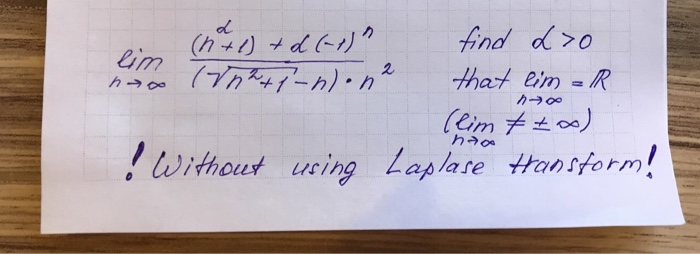 lim n→∞ ((n^α+1) + α(-1)^n) / ((√(n²+1) - n) · n²)
find α>0
that lim n→∞ = ℝ
(lim n→∞ ≠ ±∞)
! Without using Laplase transform!